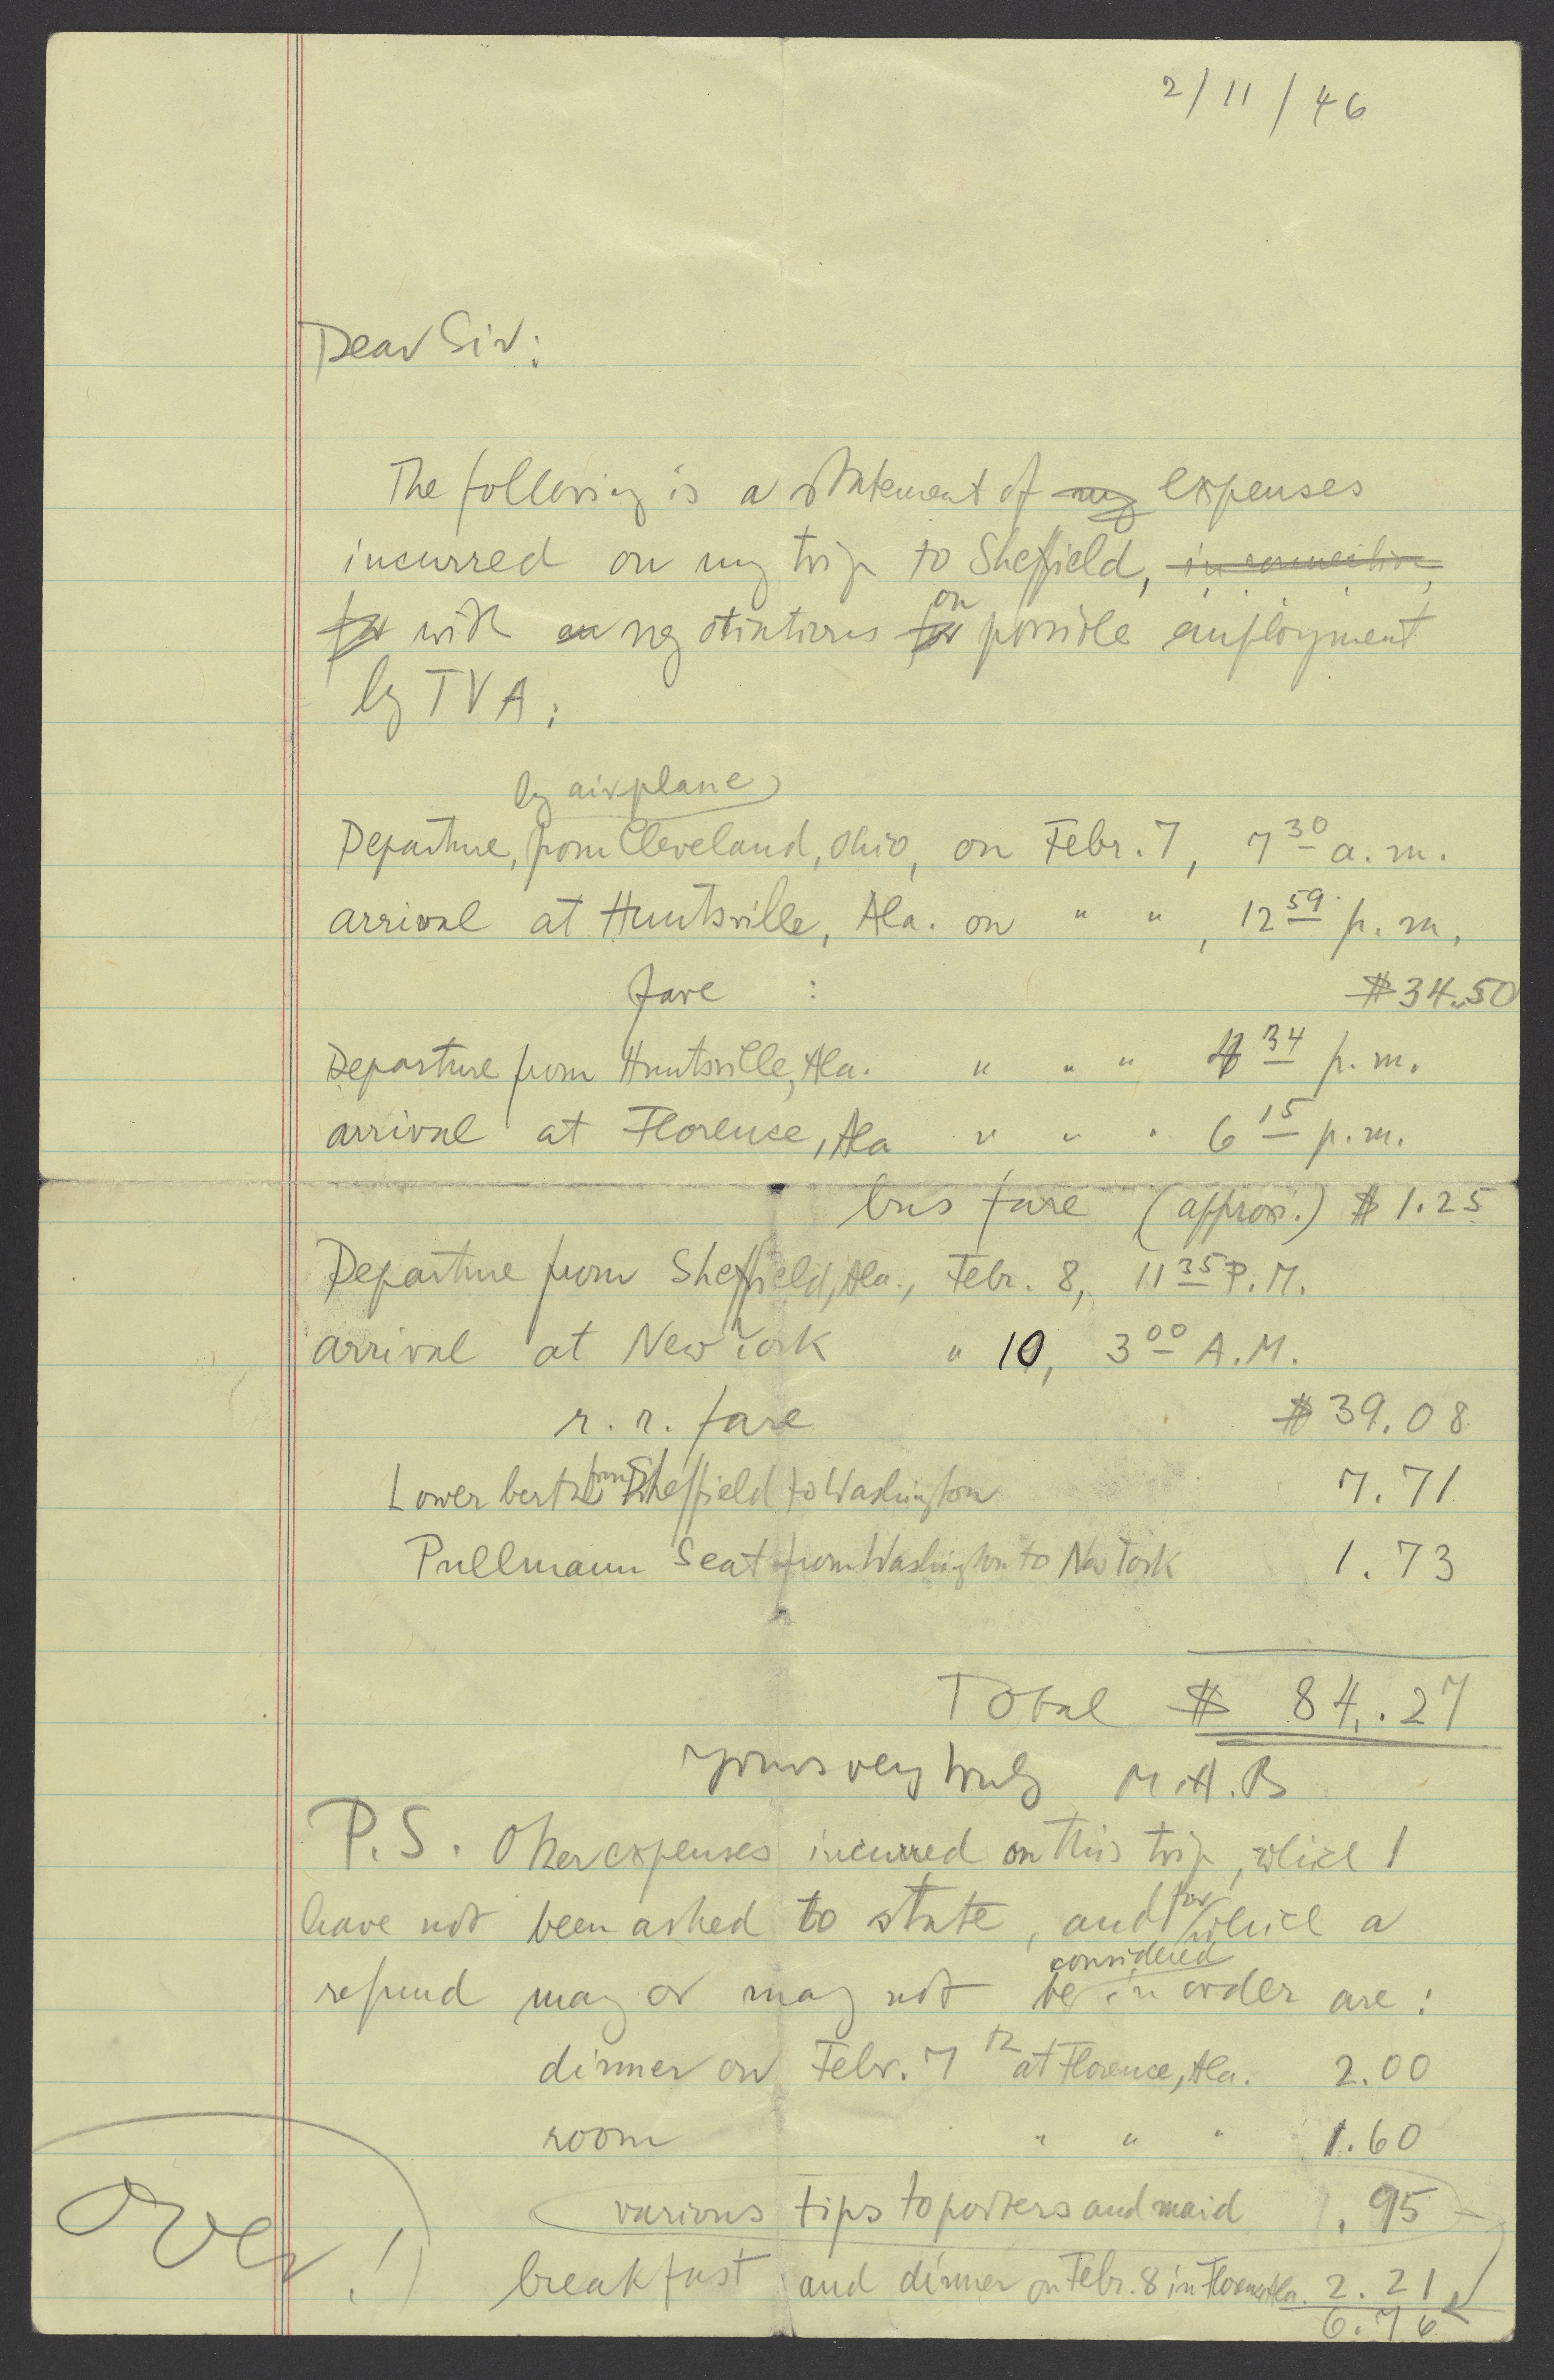 2/11/46
Dear Sir:
The following is a statement of my expenses
incurred on my trip to Sheffield, in connection
for with negotiations for on possible employment
by TVA:
by airplane
Departure, from Cleveland, Ohio, on Febr. 7, 7 30 a.m.
arrival at Huntsville, Ala. on " " , 12 59 p.m.
fare : $34.50
Departure from Huntsville, Ala. " " " 4 34 p.m.
arrival at Florence, Ala " " " 6 15 p.m.
bus fare (approx.) $ 1.25
Departure from Sheffield, Ala., Febr. 8, 11 35 P.M.
arrival at New York " 10, 3 00 A.M.
r.r. fare $ 39.08
Lower berth from Sheffield to Washington 7.71
Pullmann Seat from Washington to New York 1.73
Total $ 84.27
Yours very truly M.A.B
P.S. Other expenses incurred on this trip, which I
have not been asked to state, and for which a
considered
refund may or may not be in order are:
dinner on Febr. 7th at Florence, Ala. 2.00
room " " " 1.60
various tips to porters and maid .95
breakfast and dinner on Febr. 8 in Florence Ala. 2.21
6.76
Over!